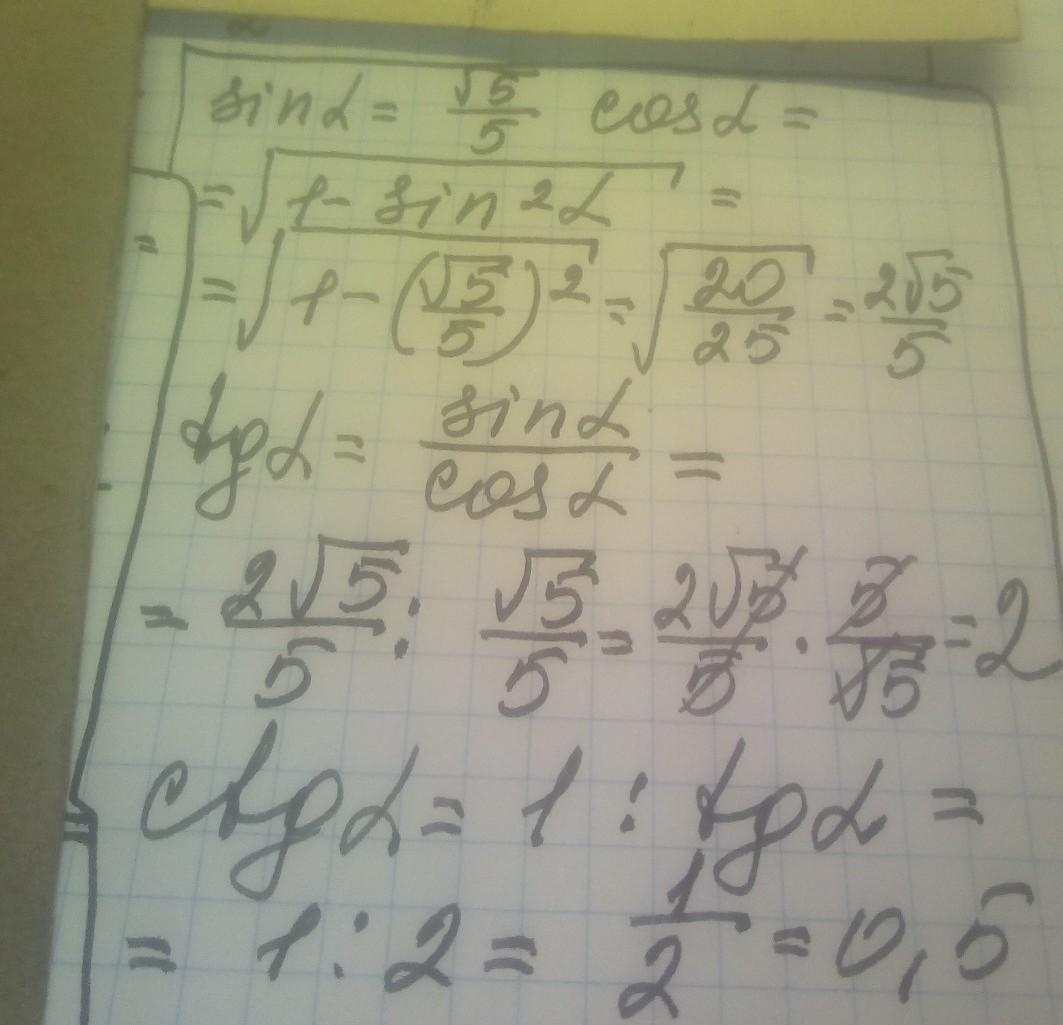 sinα = √5/5 cosα =
= √(1 - sin²α) =
= √(1 - (√5/5)²) = √(20/25) = 2√5/5
tgα = sinα/cosα =
= 2√5/5 : √5/5 = 2√5/5 · 5/√5 = 2
ctgα = 1 : tgα =
= 1 : 2 = 1/2 = 0,5